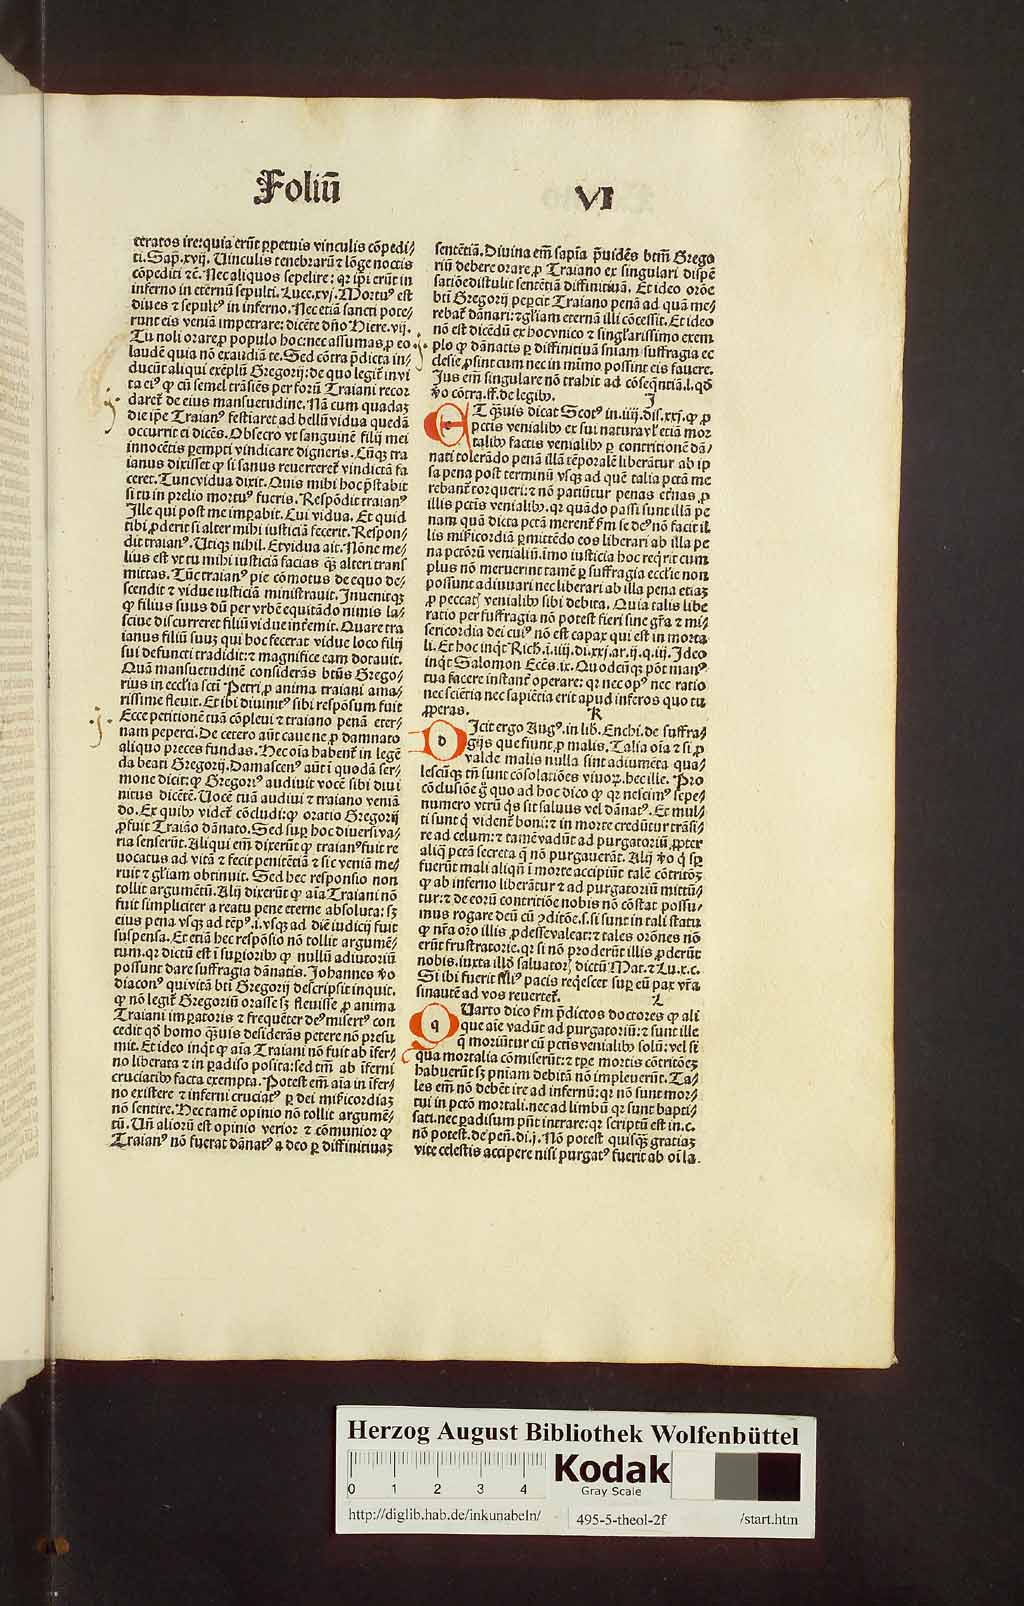 Foliū VI
ceratos ire:quia erūt ꝑpetuis vinculis cōpedi/
ti. Sap̄. xvij. Uinculis tenebrarū ⁊ lōge noctis
cōpediti ⁊c̄. Nec aliquos sepelire: qꝛ ip̄i erūt in
inferno in eternū sepulti. Luce. xvj. Mortuꝰ est
diues ⁊ sepultꝰ in inferno. Nec etiā sancti pote/
runt eis veniā impetrare: dicēte dn̄o Hiere. vij.
Tu noli orare ꝓ populo hoc: nec assumas ꝓ eo
laudē quia nō exaudiā te. Sed cōtra p̄dicta in/
ducūt aliqui exēplū Gregorij: de quo legit᷑ in vi
ta eiꝰ ꝙ cū semel trāsiēs per forū Traiani recor
daret᷑ de eius mansuetudine. Nā cum quadaꝫ
die ip̄e Traianꝰ festiaret ad bellū vidua quedā
occurrit ei dicēs. Obsecro vt sanguinē filij mei
innocētis ꝑempti vindicare digneris. Cūqꝫ tra
ianus dixisset ꝙ si sanus reuerteret᷑ vindictā fa
ceret. Tunc vidua dixit. Quis mihi hoc p̄stabit
si tu in prelio mortuꝰ fueris. Respōdit traianꝰ
Ille qui post me imꝑabit. Cui vidua. Et quid
tibi ꝓderit si alter mihi iusticiā fecerit. Respon/
dit traianꝰ. Utiqꝫ nihil. Et vidua ait. Nōne me/
lius est vt tu mihi iusticiā facias qꝫ̄ alteri trans
mittas. Tūc traianꝰ pie cōmotus de equo de/
scendit ⁊ vidue iusticiā ministrauit. Inuenitqꝫ
ꝙ filius suus dū per vrbē equitādo nimis la/
sciue discurreret filiū vidue int̓emit. Quare tra
ianus filiū suuꝫ qui hoc fecerat vidue loco filij
sui defuncti tradidit: ⁊ magnifice eam dotauit.
Quā mansuetudinē considerās btūs Grego/
rius in eccl̄ia sctī Petri ꝓ anima traiani ama/
rissime fleuit. Et ibi diuinitꝰ sibi respōsum fuit
Ecce petitionē tuā cōpleui ⁊ traiano penā eter/
nam peperci. De cetero aūt caue ne ꝓ damnato
aliquo preces fundas. Hec oīa habent᷑ in legē
da beati Gregorij. Damascenꝰ aūt ī quodā ser/
mone dicit: ꝙ Gregoriꝰ audiuit vocē sibi diui
nitus dicētē. Uocē tuā audiui ⁊ traiano veniā
do. Ex quibꝰ videt᷑ cōcludi: ꝙ oratio Gregorij
ꝓfuit Traiāo dānato. Sed suꝑ hoc diuersi va/
ria senserūt. Aliqui em̄ dixerūt ꝙ traianꝰ fuit re
uocatus ad vitā ⁊ fecit penitētiā ⁊ sic veniā me/
ruit ⁊ gl̄iam obtinuit. Sed hec responsio non
tollit argumētū. Alij dixerūt ꝙ aīa Traiani nō
fuit simpliciter a reatu pene eterne absoluta: sꝫ
eius pena vsqꝫ ad tēpꝰ. i. vsqꝫ ad diē iudicij fuit
suspensa. Et etiā hec respōsio nō tollit argumē/
tum. qꝛ dictū est ī suꝑioribꝰ ꝙ nullū adiutoriū
possunt dare suffragia dānatis. Johannes ꝟo
diaconꝰ qui vitā bti Gregorij descripsit inquit.
ꝙ nō legit᷑ Gregoriū orasse sꝫ fleuisse ꝓ anima
Traiani imꝑatoris ⁊ frequēter deꝰ misertꝰ con
cedit qd̄ homo qꝫ̄uis desiderās petere nō presu
mit. Et ideo inqt̄ ꝙ aīa Traiani nō fuit ab īfer/
no liberata ⁊ in ꝑadiso posita: sed tm̄ ab īferni
cruciatibꝰ facta exempta. Potest em̄ aīa in īfer/
no existere ⁊ inferni cruciatꝰ ꝑ dei miẜicordiaꝫ
nō sentire. Nec tamē opinio nō tollit argumē/
tū. Un̄ aliorū est opinio verior ⁊ cōmunior ꝙ
Traianꝰ nō fuerat dānatꝰ a deo ꝑ diffinitiuaꝫ
sentētiā. Diuina em̄ sapīa p̄uidēs btm̄ Grego
riū debere orare ꝓ Traiano ex singulari dispē
satiōe distulit sentētiā diffinitiuā. Et ideo orōe
bti Gregorij peꝑcit Traiano penā ad quā me/
rebat᷑ dānari: ⁊ gl̄iam eternā illi cōcessit. Et ideo
nō est dicēdū ex hoc vnico ⁊ singl̄arissimo exem
plo ꝙ dānatis ꝑ diffinitiuā sn̄iam suffragia ec
clesie ꝓsint cum nec in mīmo possint eis fauere.
Jus em̄ singulare nō trahit ad cōseqn̄tiā. l. qd̄
ꝟo cōtra. ff. de legibꝰ. J
ET qꝫ̄uis dicat Scotꝰ in. iiij. dis. xxj. ꝙ ꝓ
pctis venialibꝰ ex sui natura vl̓ etiā mor
talibꝰ factis venialibꝰ ꝑ contritionē dā/
nati tolerādo penā illā tēporalē liberātur ab ip
sa pena post terminū vsqꝫ ad quē talia pctā me
rebant᷑ torqueri: ⁊ nō patiūtur penas et̓nas ꝓ
illis pctīs venialibꝰ. qꝛ quādo passi sunt illā pe
nam quā dicta pctā merent᷑ ẜm se deꝰ nō facit il
lis miẜicordiā ꝑmittēdo eos liberari ab illa pe
na pctōrū venialiū. imo iusticia hoc reqͥrit cum
plus nō meruerint tamē ꝑ suffragia eccl̄ie non
possunt adiuuari nec liberari ab illa pena etiaꝫ
ꝓ peccatꝭ venialibꝰ sibi debita. Quia talis libe
ratio per suffragia nō potest fieri sine gr̄a ⁊ mi/
sericordia dei cuiꝰ nō est capax qui est in morta
li. Et hoc inqt̄ Rich. i. iiij. di. xxj. ar. ij. q. iij. Ideo
inqt̄ Salomon Eccēs. ix. Quodcūqꝫ pōt manꝰ
tua facere instant̓ operare: qꝛ nec opꝰ nec ratio
nec sciētia nec sapiētia erit apud inferos quo tu
ꝓperas. K
DIcit ergo Augꝰ. in lib. Enchi. de suffra/
gijs que fiunt ꝓ malis. Talia oīa ⁊ si ꝓ
valde malis nulla sint adiumēta qua/
lescūqꝫ tn̄ sunt cōsolatiōes viuoꝝ. hec ille. Pro
cōclusiōe g̊ quo ad hoc dico ꝙ qꝛ nescimꝰ sepe/
numero vtrū qͥs sit saluus vel dānatꝰ. Et mul/
ti sunt qͥ vident᷑ boni: ⁊ in morte credūtur trāsi/
re ad celum: ⁊ tamē vadūt ad purgatoriū ꝓpter
aliqͣ pctā secreta q̄ nō purgauerāt. Alij ꝟo qͥ sꝑ
fuerūt mali aliqn̄ ī morte accipiūt talē cōtritōꝫ
ꝙ ab inferno liberātur ⁊ ad purgatoriū mittū/
tur: ⁊ de eorū contritiōe nobis nō cōstat possu/
mus rogare deū cū ꝯditōe. s. si sunt in tali statu
ꝙ nr̄a or̄o illis ꝓdesse valeat: ⁊ tales orōnes nō
erūt frustratorie. qꝛ si nō proderūt illis ꝓderūt
nobis. iuxta illd̄ saluatorꝭ dictū Mat. ⁊ Lu. x. c.
Si ibi fuerit filiꝰ pacis reqͥescet suꝑ eū pax vr̄a
sinautē ad vos reuertet᷑. L
QUarto dico ẜm p̄dictos doctores ꝙ ali
que aīe vadūt ad purgatoriū: ⁊ sunt ille
q̄ moriūtur cū pctīs venialibꝰ solū: vel si
qua mortalia cōmiserūt: ⁊ tꝑe mortis cōtritōeꝫ
habuerūt sꝫ pn̄iam debitā nō impleuerūt. Ta/
les em̄ nō debēt ire ad infernū: qꝛ nō sunt mor/
tui in pctō mortali. nec ad limbū qꝛ sunt bapti/
sati. nec ꝑadisum pn̄t intrare: qꝛ scriptū est in. c.
nō potest. de pen̄. di. j. Nō potest quisqꝫ gratiaꝫ
vite celestis accipere nisi purgatꝰ fuerit ab oī la.
Herzog August Bibliothek Wolfenbüttel
0 1 2 3 4
Kodak
Gray Scale
http://diglib.hab.de/inkunabeln/ 495-5-theol-2f /start.htm